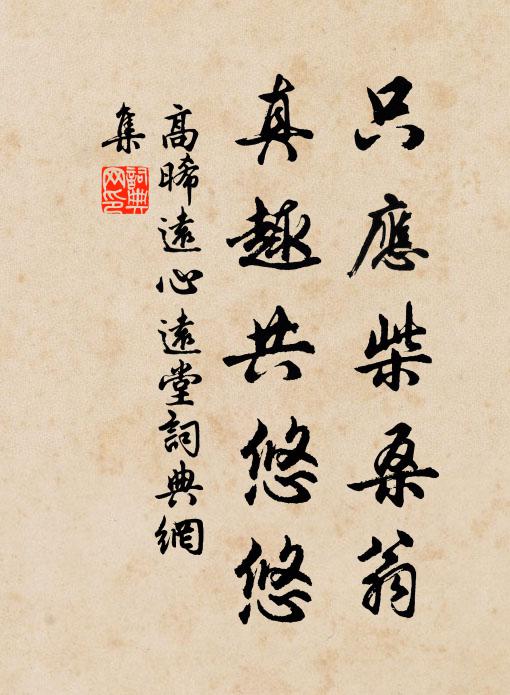 只應柴桑翁
真趣共悠悠
高晞遠心遠堂詞典網
集
詞典网印